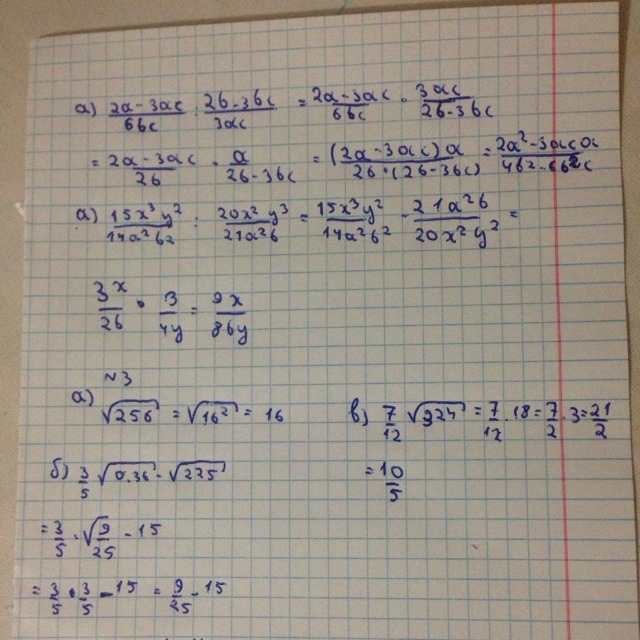 а) (2a-3ac)/(6bc) : (2b-3bc)/(3ac) = (2a-3ac)/(6bc) · (3ac)/(2b-3bc)
= (2a-3ac)/(2b) · a/(2b-3bc) = ((2a-3ac)a)/(2b·(2b-3bc)) = (2a²-3aca)/(4b²-6b²c)
а) (15x³y²)/(14a²b²) : (20x²y³)/(21a²b) = (15x³y²)/(14a²b²) · (21a²b)/(20x²y²) =
(3x)/(2b) · 3/(4y) = (9x)/(8by)
№3
а) √256 = √16² = 16
б) 3/5 √0.36 - √225
= 3/5 · √(9/25) - 15
= 3/5 · 3/5 - 15 = 9/25 - 15
в) 7/12 √324 = 7/12 · 18 = 7/2 · 3 = 21/2
= 10/5